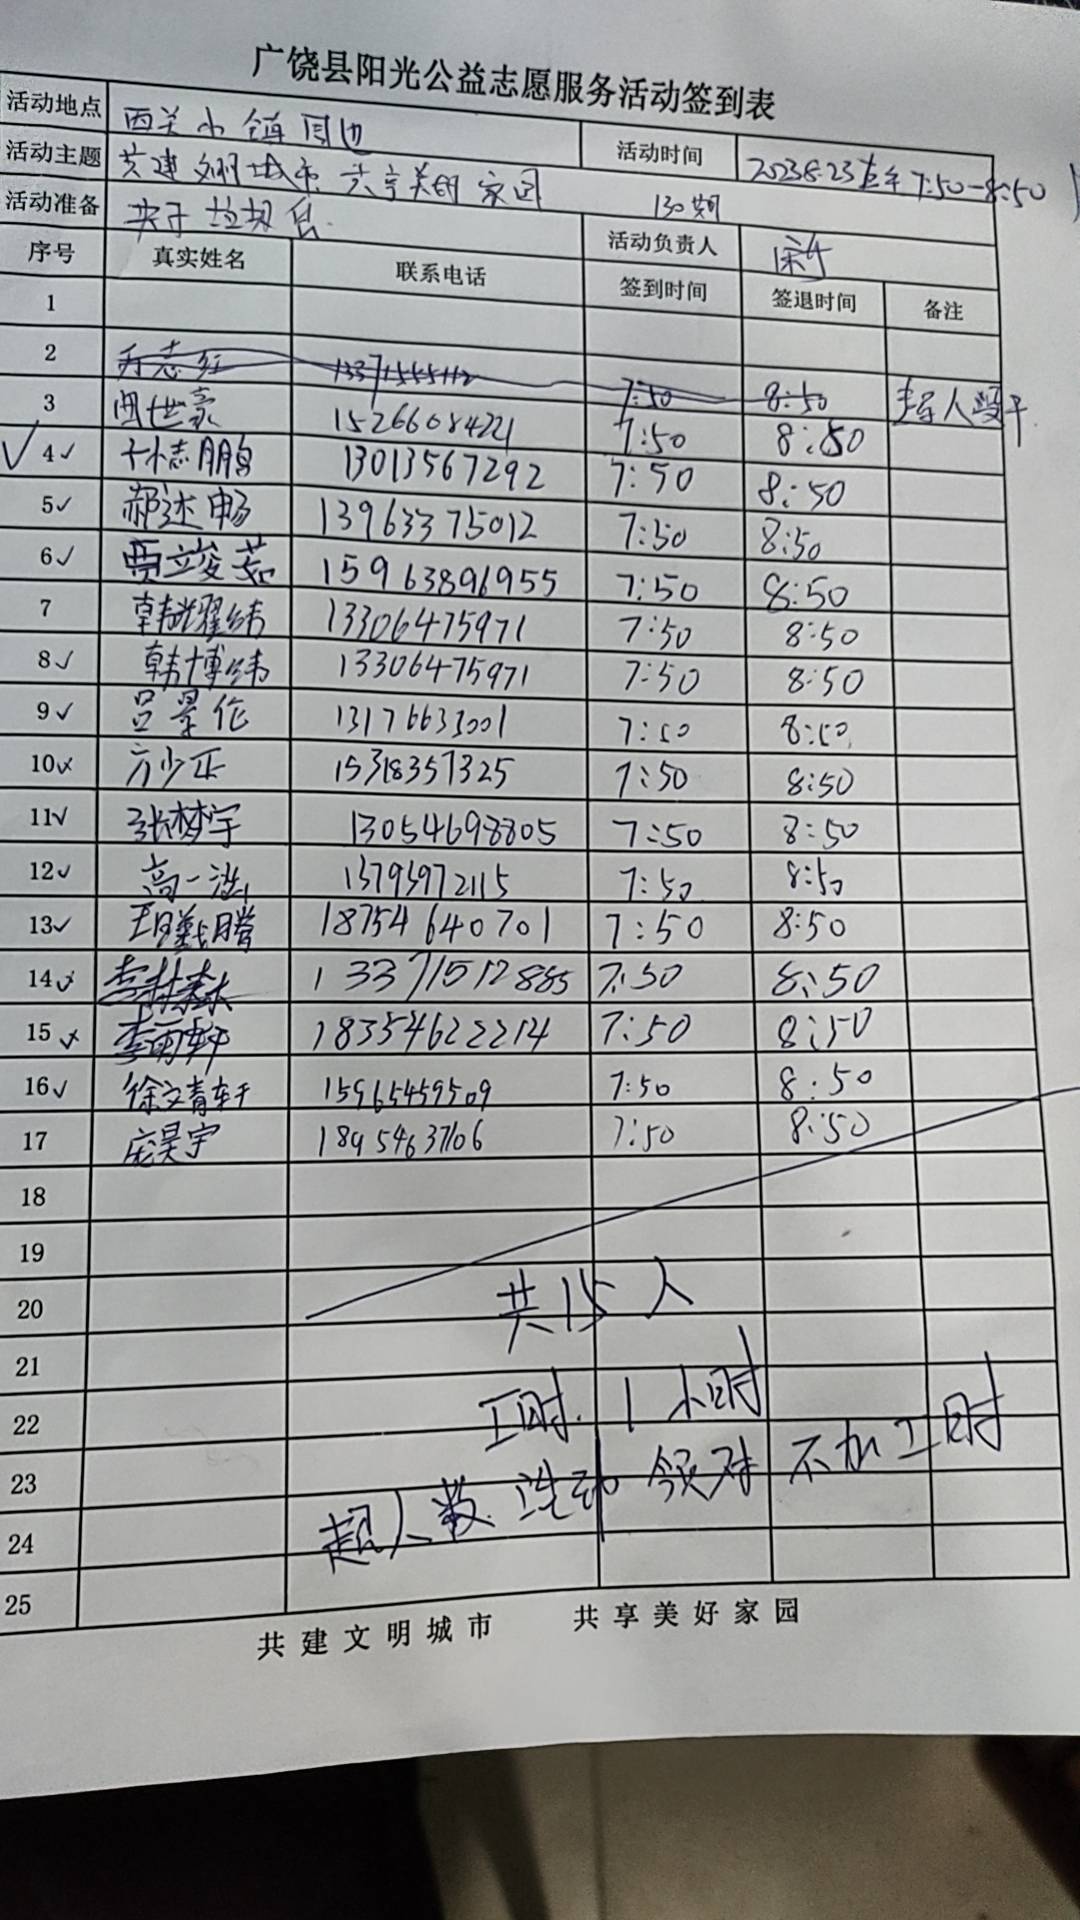 广饶县阳光公益志愿服务活动签到表
活动地点 西关小镇周边 活动时间 2023.8.23 上午 7:50-8:50
活动主题 共建文明城市 共享美好家园 130期
活动准备 夹子 垃圾袋 活动负责人
序号 真实姓名 联系电话 签到时间 签退时间 备注
1
2 13371555112 7:50 8:50 超人数
3 周世豪 15266084221 7:50 8:50
4 志鹏 13013567292 7:50 8:50
5 郝述畅 13963375012 7:50 8:50
6 贾竣茹 15963896955 7:50 8:50
7 韩耀纬 13306475971 7:50 8:50
8 韩博纬 13306475971 7:50 8:50
9 吕景作 13176633001 7:50 8:50
10 方少正 15318357325 7:50 8:50
11 张梦宇 13054698805 7:50 8:50
12 高一 13793972115 7:50 8:50
13 腾 18754640701 7:50 8:50
14 李 13371512885 7:50 8:50
15 李雨轩 18354622214 7:50 8:50
16 徐文青轩 15965459509 7:50 8:50
17 庞昊宇 18954637106 7:50 8:50
18
19
20 共15人
21
22 工时 1小时
23
24 超人数 活动 领队 不加工时
25
共建文明城市 共享美好家园